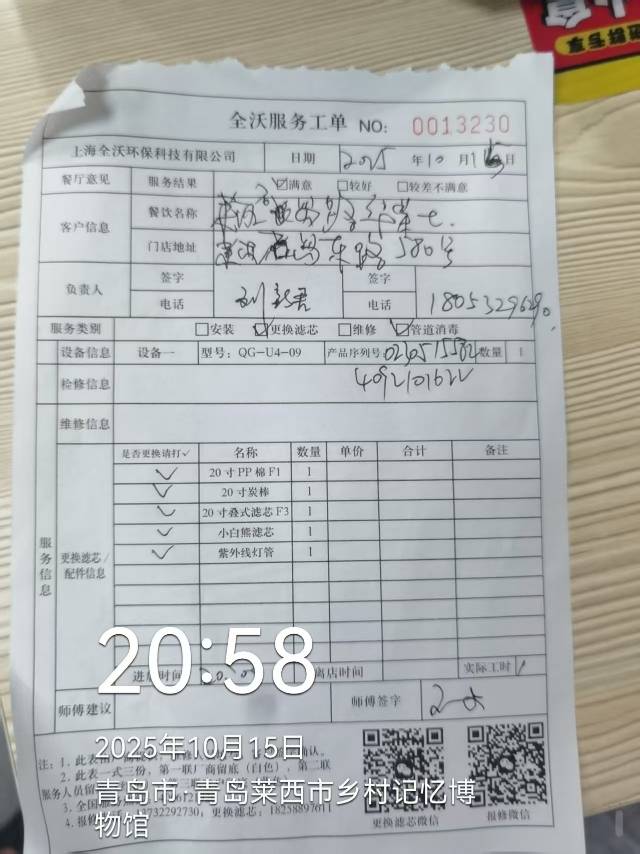 全沃服务工单 NO: 0013230
上海全沃环保科技有限公司 日期 2025 年 10 月 15 日
餐厅意见 服务结果 ☑满意 □较好 □较差不满意
客户信息 餐饮名称
门店地址 东路580号
负责人 签字 签字
电话 电话 18053296290
服务类别 □安装 ☑更换滤芯 □维修 ☑管道消毒
设备信息 设备一 型号: QG-U4-09 产品序列号 0230515582 数量 1
检修信息 4092101622
维修信息
服务信息
更换滤芯/配件信息
是否更换请打✓ 名称 数量 单价 合计 备注
✓ 20寸PP棉F1 1
✓ 20寸炭棒 1
✓ 20寸叠式滤芯F3 1
✓ 小白熊滤芯 1
✓ 紫外线灯管 1
20:58
进店时间 离店时间 实际工时 1
师傅建议 师傅签字
2025年10月15日
青岛市·青岛莱西市乡村记忆博
物馆
注: 1. 此表
2. 此表一式三份, 第一联厂商留底(白色), 第二联
服务人员留
3. 全国
4. 报修 13732292730; 更换滤芯: 18258897611
更换滤芯微信 报修微信